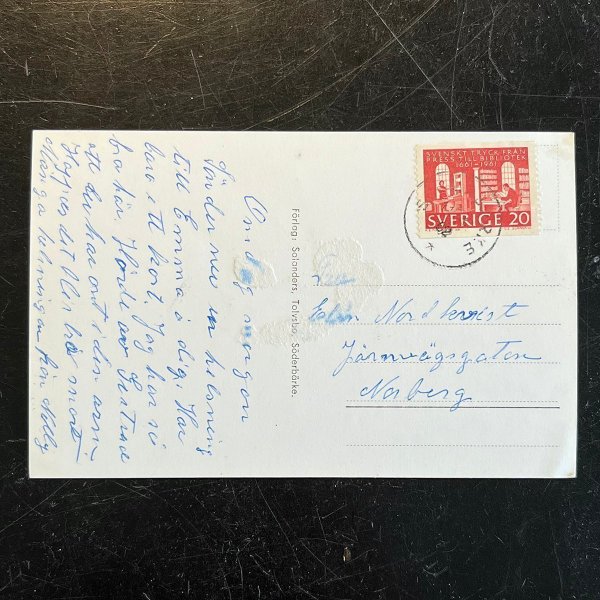 Onsdag morgon
Sänder nu en helsning
till Emma å dig. Har
bara ett kort. Jag har så
bra här. Hörde av
att du har ont i den arm
Hoppas det blir bra snart
Många helsningar från Nelly
Förlag: Solanders, Tolvsbo, Söderbärke.
SVENSKT TRYCK FRÅN
PRESS TILL BIBLIOTEK
1661-1961
SVERIGE 20
Fru
Elin Nordkvist
Järnvägsgatan
Norberg